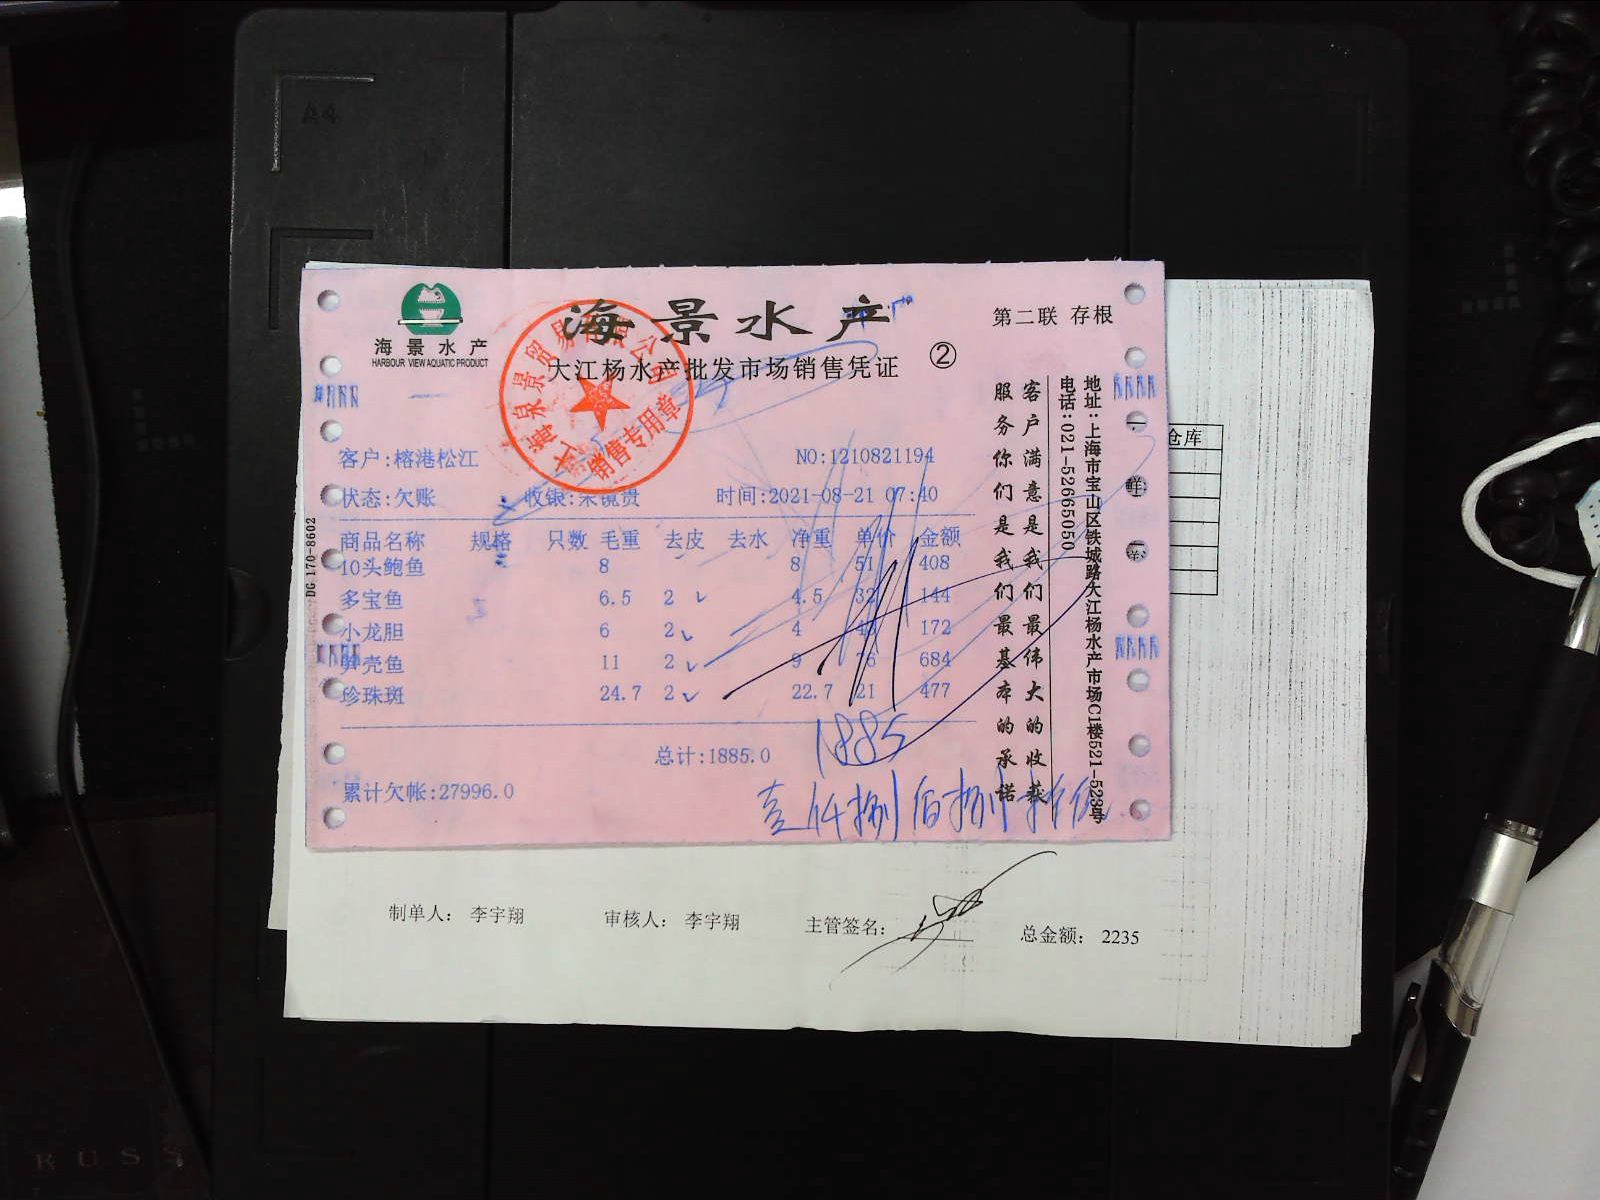 A4
海景水产
HARBOUR VIEW AQUATIC PRODUCT
海景水产
大江杨水产批发市场销售凭证 ②
第二联 存根
销售专用章
客户:榕港松江 NO:1210821194
状态:欠账 收银:朱镜贵 时间:2021-08-21 07:40
商品名称 规格 只数 毛重 去皮 去水 净重 单价 金额
10头鲍鱼 8 8 51 408
多宝鱼 6.5 2 4.5 32 144
小龙胆 6 2 4 43 172
笋壳鱼 11 2 9 76 684
珍珠斑 24.7 2 22.7 21 477
总计:1885.0
1885
累计欠帐:27996.0
壹仟捌佰捌拾伍
客户满意是我们最伟大的收获
服务你们是我们最基本的承诺
地址:上海市宝山区铁城路大江杨水产市场C1楼521-523号
电话:021-52665050
DG 170-8602
仓库
制单人: 李宇翔 审核人: 李宇翔 主管签名: 总金额: 2235
RUSS